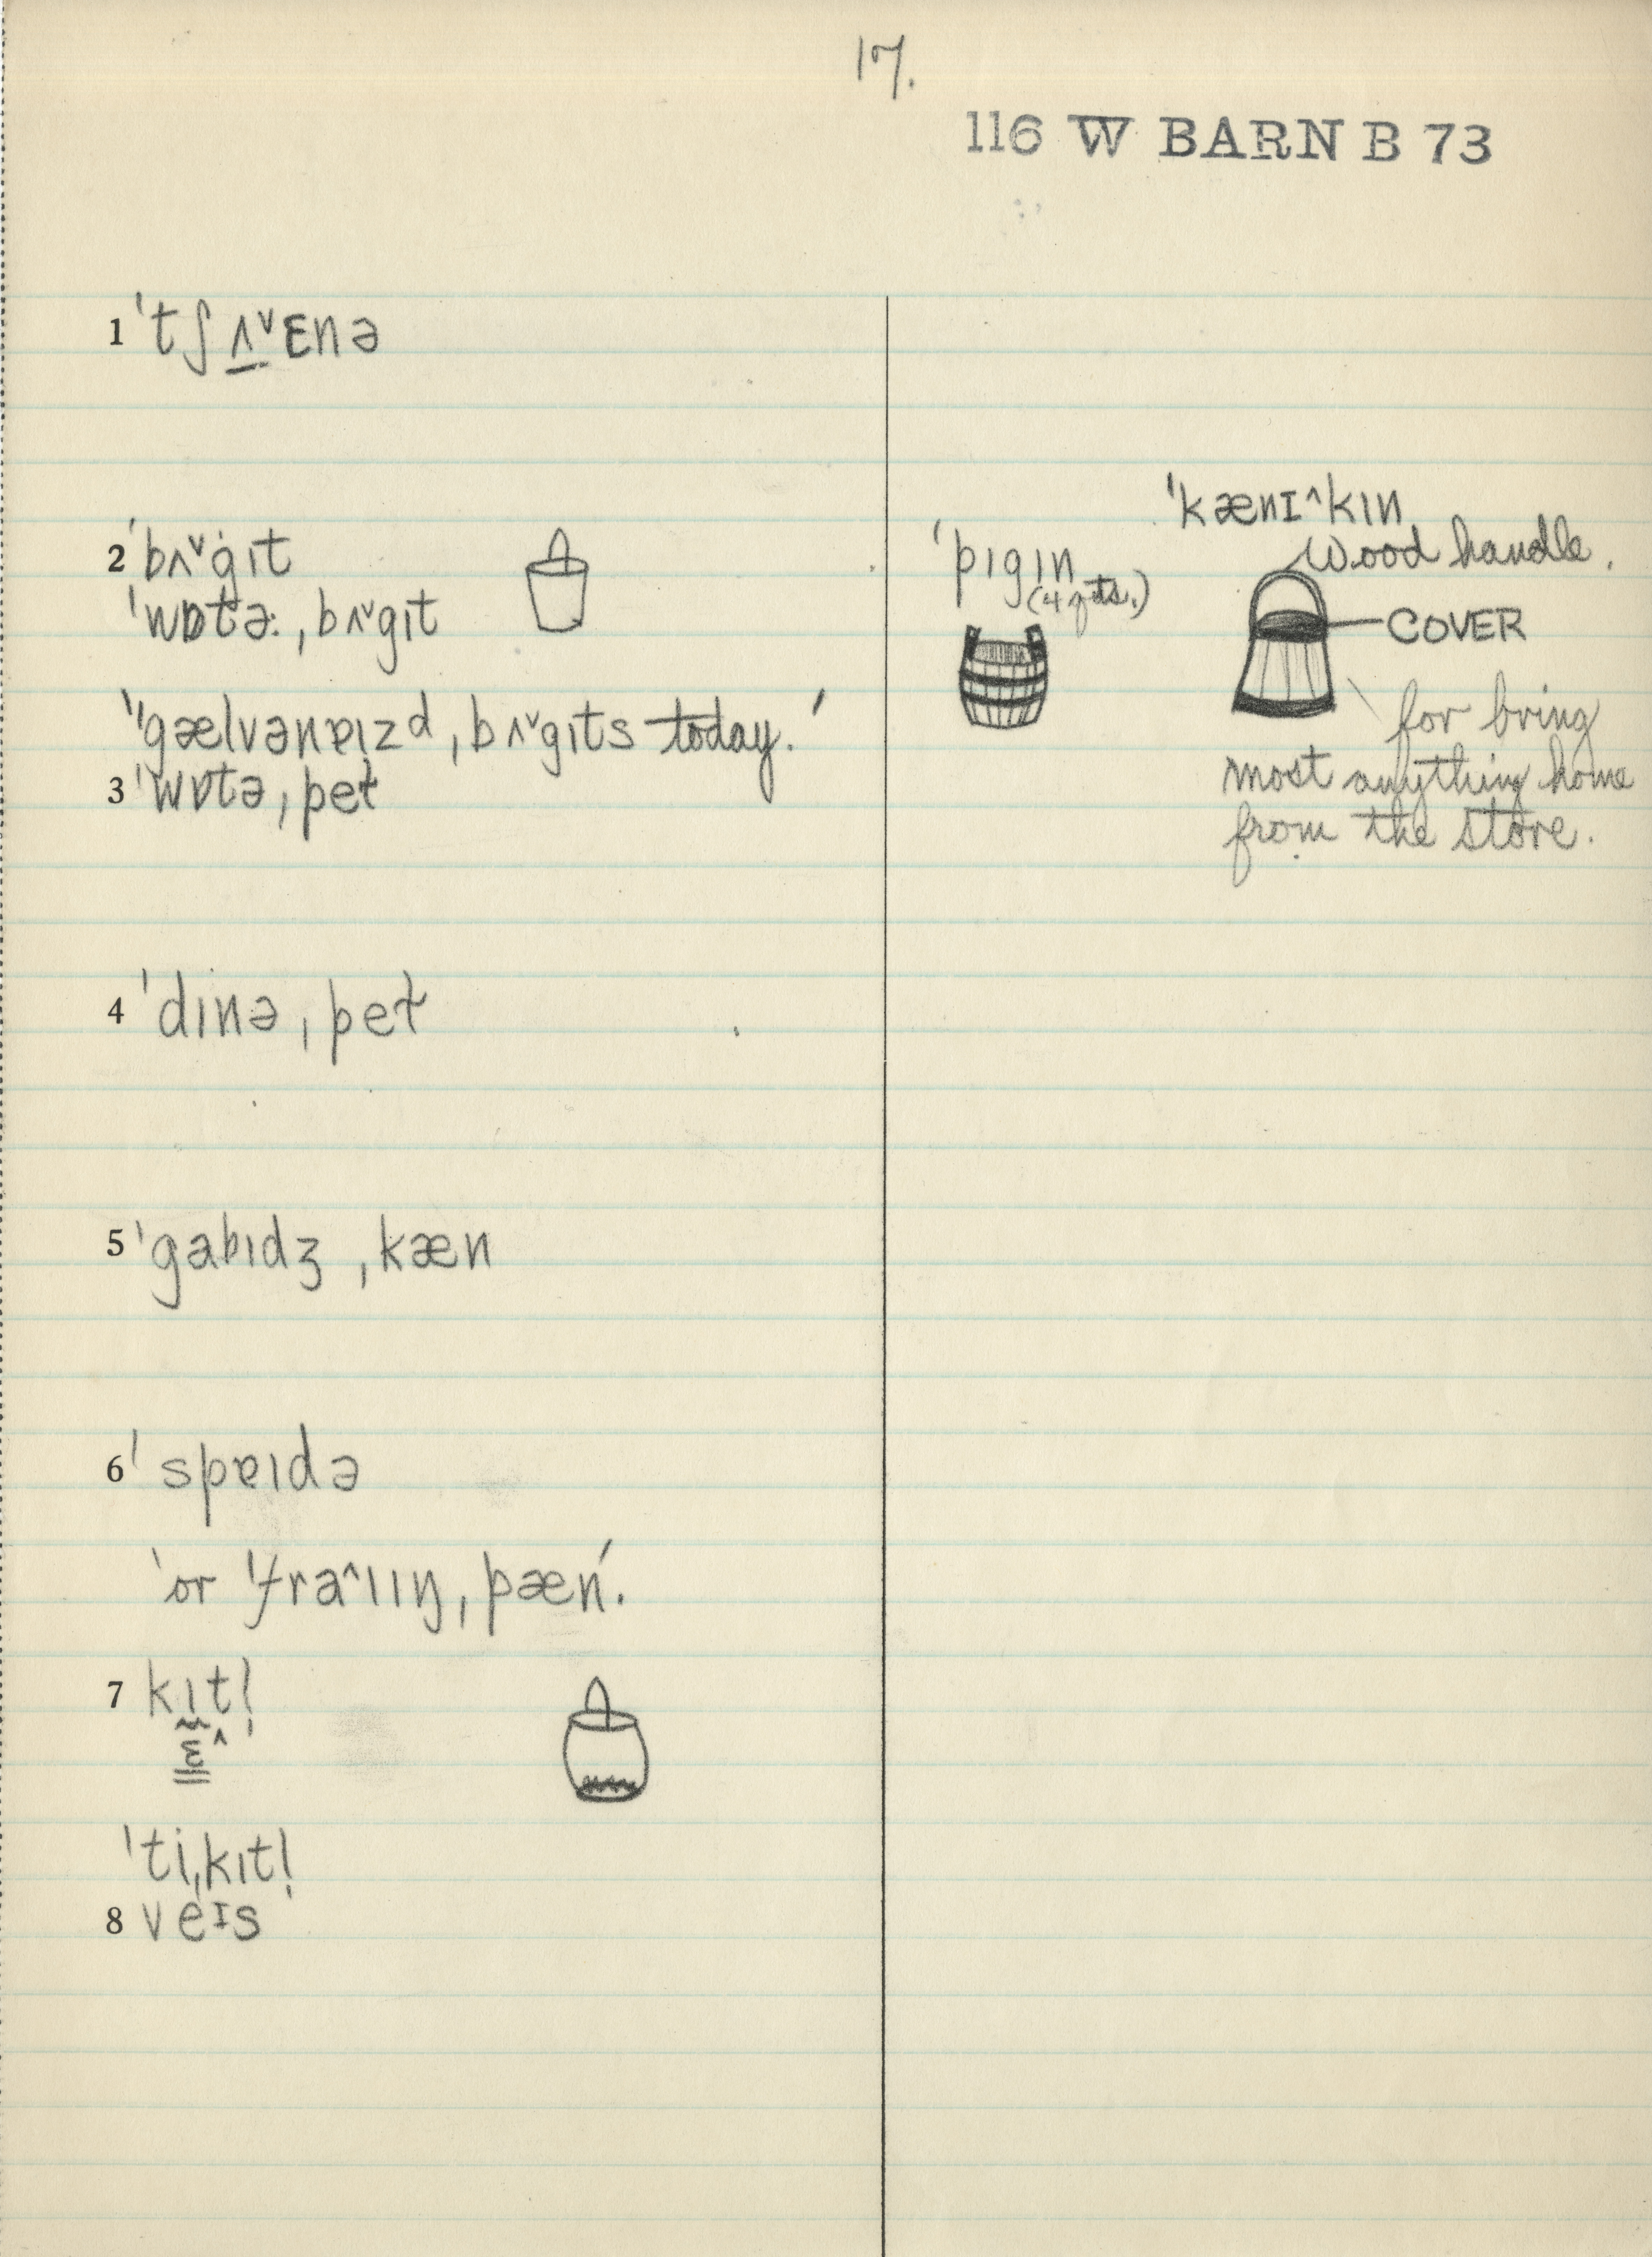 17.
116 W BARN B 73
1 ˈtʃʌ̱ˇɛnə
2 ˈbʌˇgɪt
ˈwɒtə:ˌbʌˇgɪt
"gælvənɐɪzdˌbʌˇgɪts today.'
3 ˈwɒtəˌpeɫ
4 ˈdɪnəˌpeɫ
5 ˈgabɪdʒˌkæn
6 ˈspɐɪdə
'or ˈfraˆɪɪŋˌpæn'.
7 kɪt!
ɛˆ
ˈtiˌkɪt!
8 veɪs
ˈkænɪˆkɪn
Wood handle.
ˈpɪgɪn
(4 qts.)
COVER
for bring
most anything home
from the store.